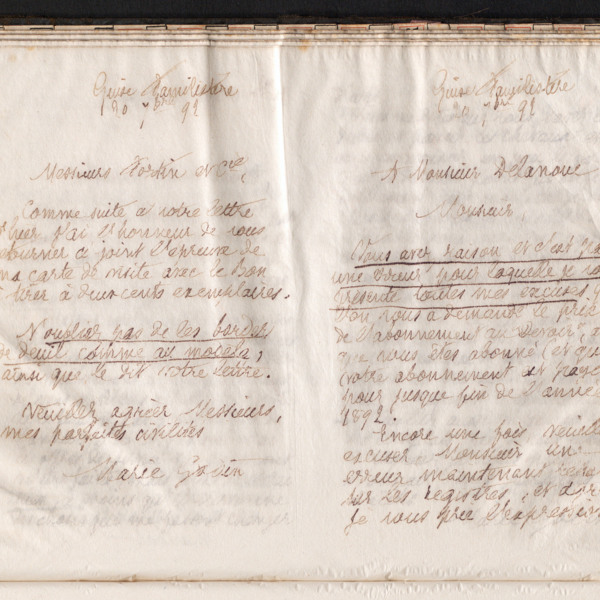 Guise Familistère
20 7bre 91
Messieurs Fortin et Cie,
Comme suite à votre lettre
d'hier j'ai l'honneur de vous
retourner ci joint l'épreuve de
ma carte de visite avec le bon
à tirer à deux cents exemplaires.
N'oubliez pas de les border
de deuil comme au modèle,
ainsi que le dit votre lettre.
Veuillez agréer Messieurs,
mes parfaites civilités
Marie Godin
Guise Familistère
20 7bre 91
A Monsieur Delanoue
Monsieur,
Vous avez raison et c'est
une erreur pour laquelle je
présente toutes mes excuses
on vous a demandé le prix
de l'abonnement au Devoir,
que vous êtes abonné (et
votre abonnement est payé
pour jusque fin de l'année
1892.
Encore une fois veuillez
excuser Monsieur une
erreur maintenant
sur les registres, et
je vous prie l'expression